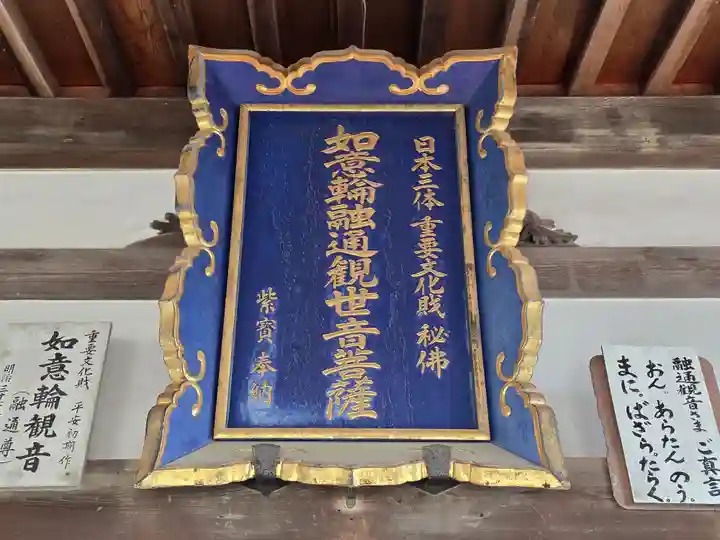 日本三体 重要文化賎 秘佛
如意輪融通観世音菩薩
紫寳奉納
重要文化賎 平安初期作
如意輪観音
(融通尊)
融通観音さま ご真言
おん。あらたん のう。
まに。ばざら。たらく。